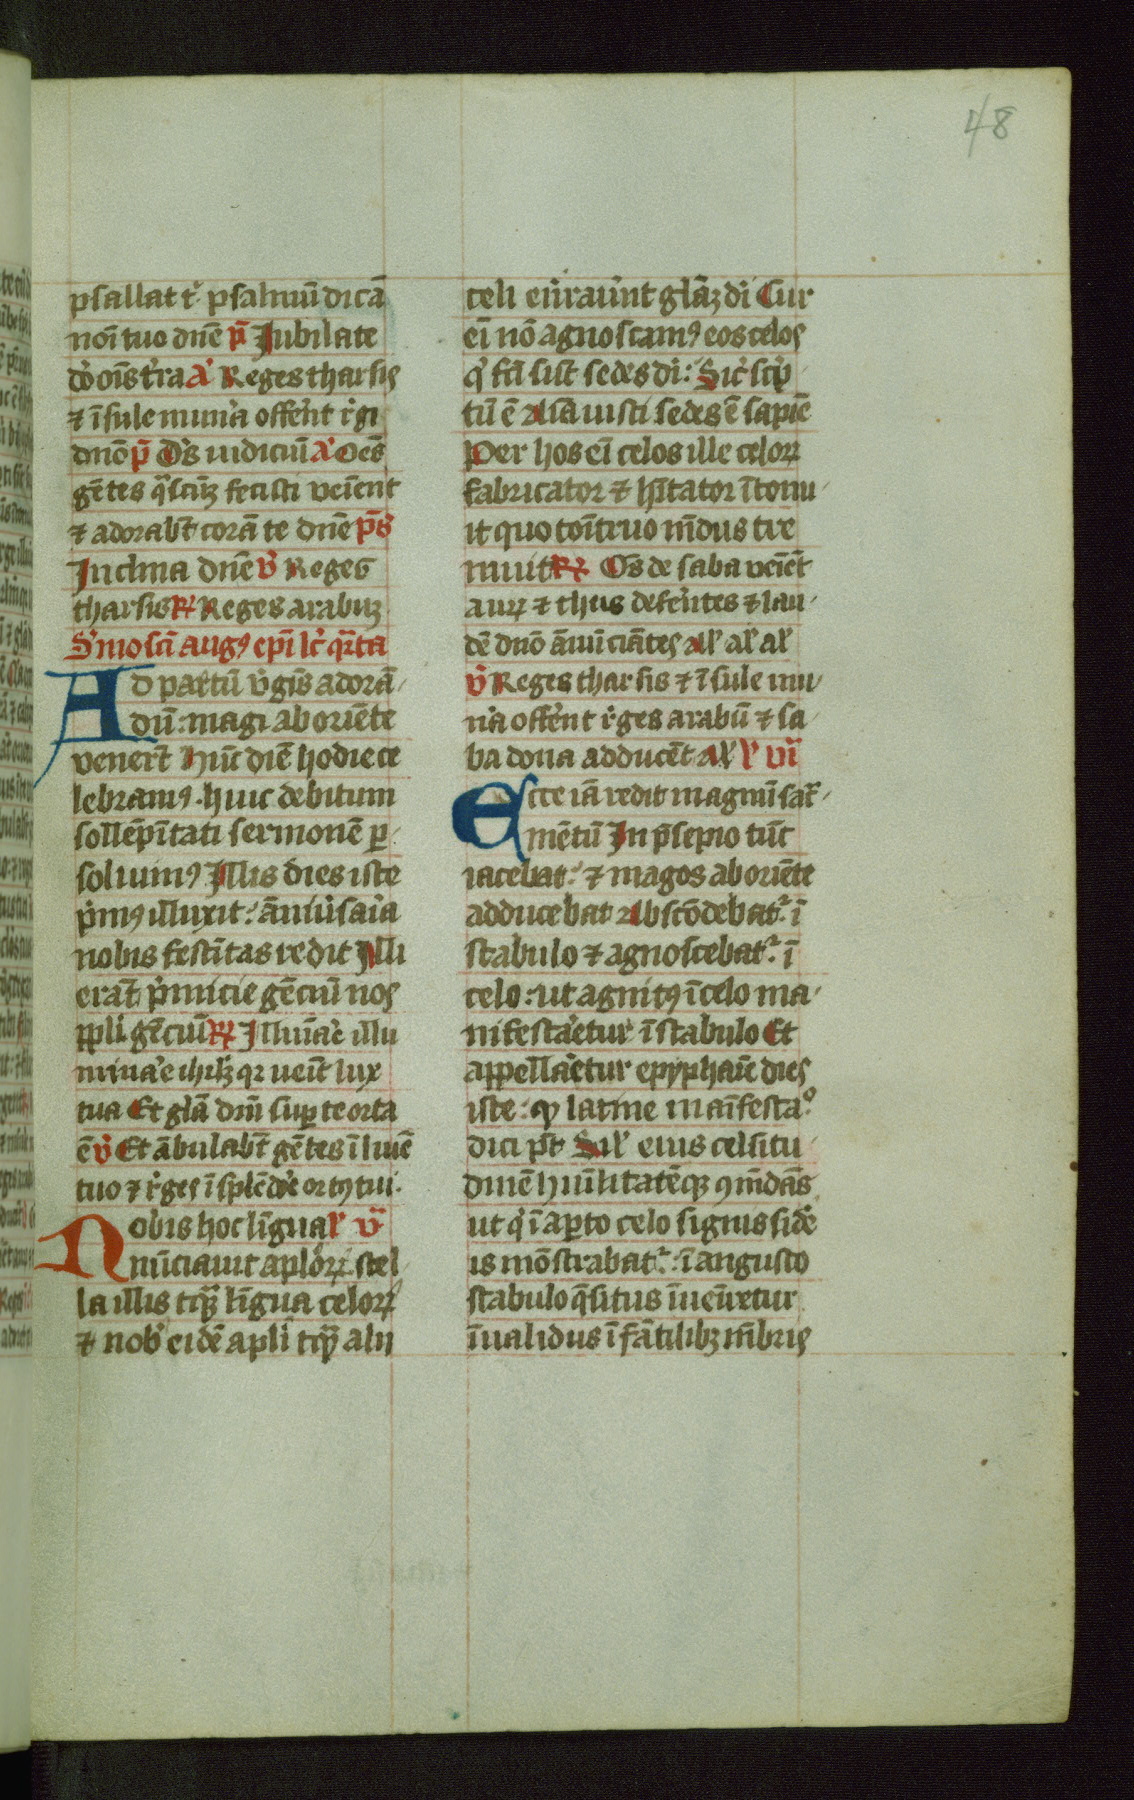 48
psallat t psalmū dicā
noī tuo dn̄e p̄ Jubilate
dō oīs t̄ra A Reges tharsis
⁊ īsule mun̄a offer̄nt r̄gi
dn̄o p̄ Ds̄ iudiciū A Oēs
gētes q̄scūqꝫ fecisti veīent
⁊ adorabt̄ corā te dn̄e p̄s
Jnclina dn̄e v̄ Reges
tharsis Rꝝ Reges arabuꝫ
S̄mo sc̄i augꝰ ep̄i lc̄ q̄rta
AD partū v̄gis̄ adorā
dū: magi ab oriēte
venert̄ Hūc diē hodie ce
lebramꝰ. huic debitum
sollēpītati sermonē ꝑ
soluimꝰ Jllis dies iste
p̄mꝰ illuxit: āniūsaīa
nobis festītas redit Jlli
erāt p̄micie gēciū nos
ppl̄i gēciū Rꝝ Jlluīāe illu
minaē ihrlꝫ qꝛ veīt lux
tua Et glā dn̄i suꝑ te orta
ē v̄ Et ābulabt̄ gētes ī luīē
tuo ⁊ r̄ges ī splēdōe ortꝰ tui.
Nobis hoc līgua l̄ v̄
nūciauit aplōꝝ. stel
la illis tꝙ̄ līgua celoꝝ
⁊ nob̄ eidē apl̄i tꝙ̄ alij
celi en̄raūnt glāꝫ di Cur
eī nō agnoscamꝰ eos celos
q̄ fc̄i sūt sedes di: Sic̄ scp̄
tū ē Aīa iusti sedes ē sapīē
Per hos eī celos ille celoꝝ
fabricator ⁊ hītator ītonu
it quo toītruo mūdus tre
muit Rꝝ Oēs de saba veīēt
auꝝ ⁊ thus defeŕntes ⁊ lau
dē dn̄o ānūciātes al̄ al̄ al̄
v̄ Reges tharsis ⁊ īsule mu
na offer̄nt r̄ges arabū ⁊ sa
ba dona adducēt Al̄ l̄ vī
Ecce iā redit magnū sac̄
mētū Jn p̄sepio tūc
iacebat: ⁊ magos ab oriēte
adducebat Abscōdebat̄ ī
stabulo ⁊ agnoscebat̄ ī
celo: ut agnitꝰ ī celo ma
nifestāetur ī stabulo Et
appellāetur epyphaīē dies
iste: qd latine māifesta͞o
dici pt̄ Sil̄ eius celsitu
dinē hūilitatēqꝫ ꝯmēdās
ut q̄ ī aꝑto celo signis sidē
is mōstrabat̄: ī angusto
stabulo q̄situs īueīretur
īualidus ī fātilibꝫ mēbris